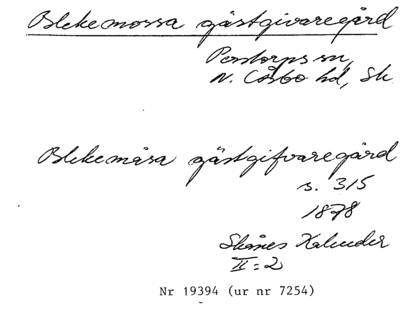 Blekemossa gästgivaregård
Perstorps sn,
N. Åsbo hd, Sk.
Blekemåsa gästgifvaregård
s. 315
1878
Skånes Kalender
II:2
Nr 19394 (ur nr 7254)